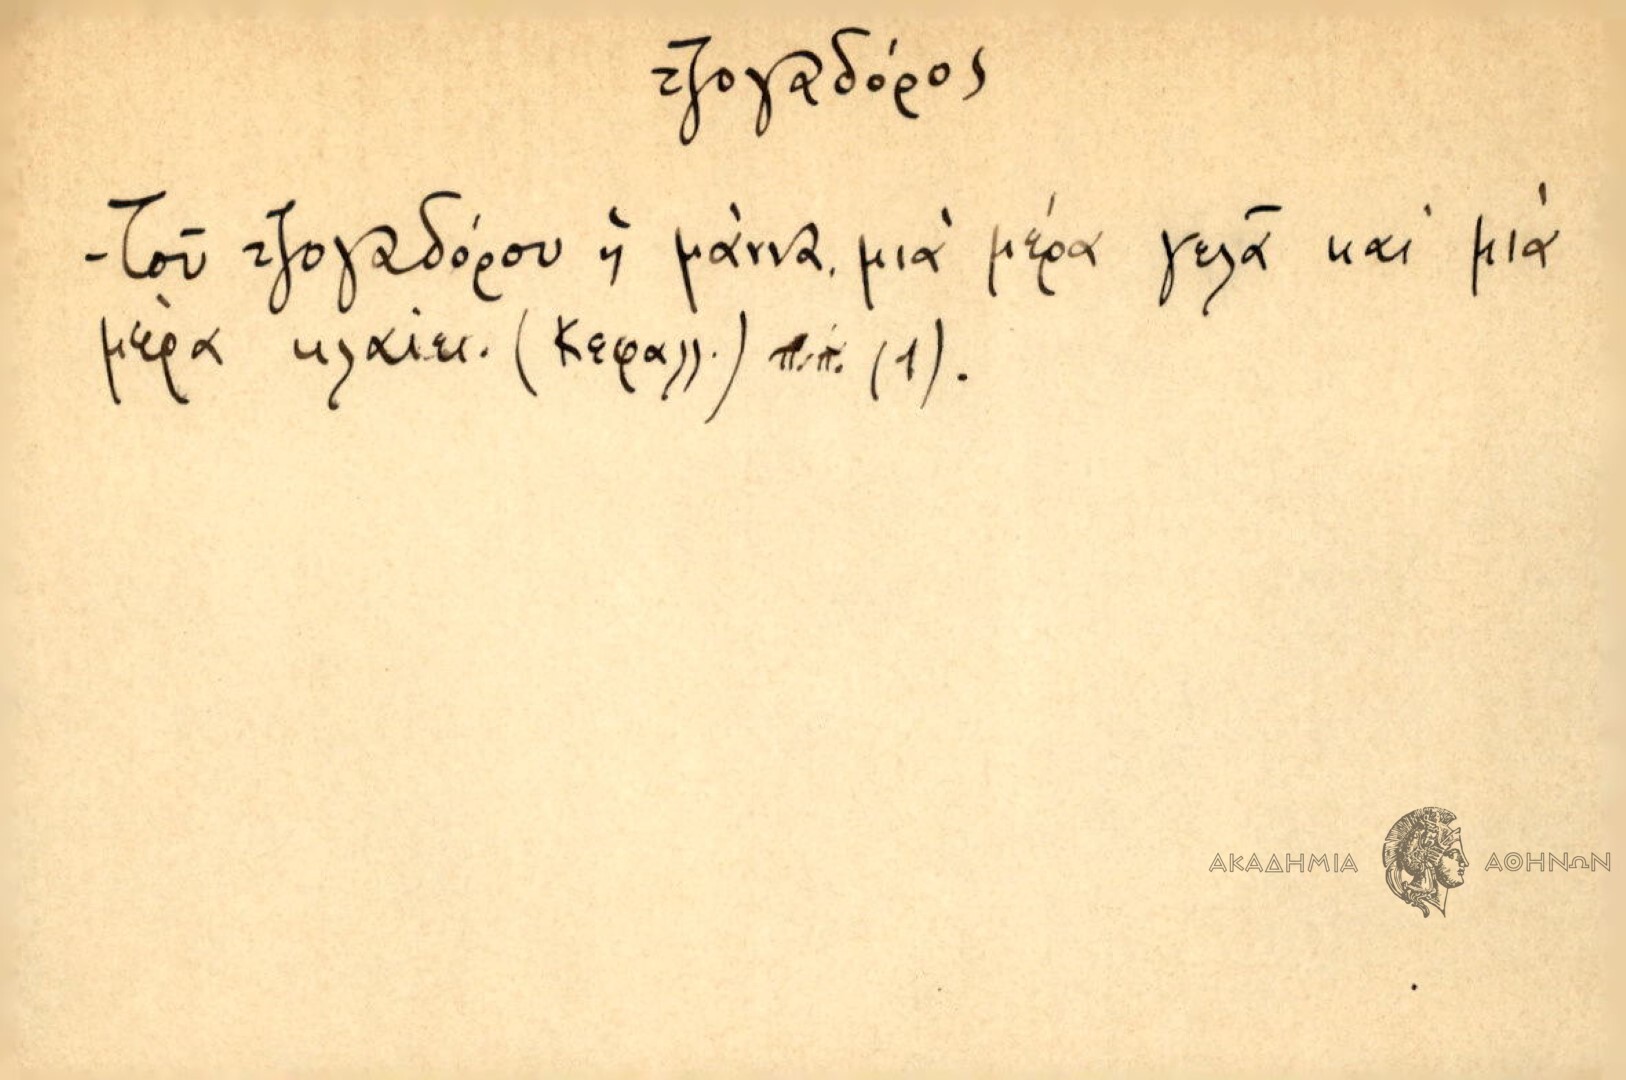 τζογαδόρος
-Τοῦ τζογαδόρου ἡ μάννα, μιὰ μέρα γελᾶ καὶ μιὰ
μέρα κλαίει. (Κεφαλλ.) π.π. (1).
ΑΚΑΔΗΜΙΑ ΑΘΗΝΩΝ